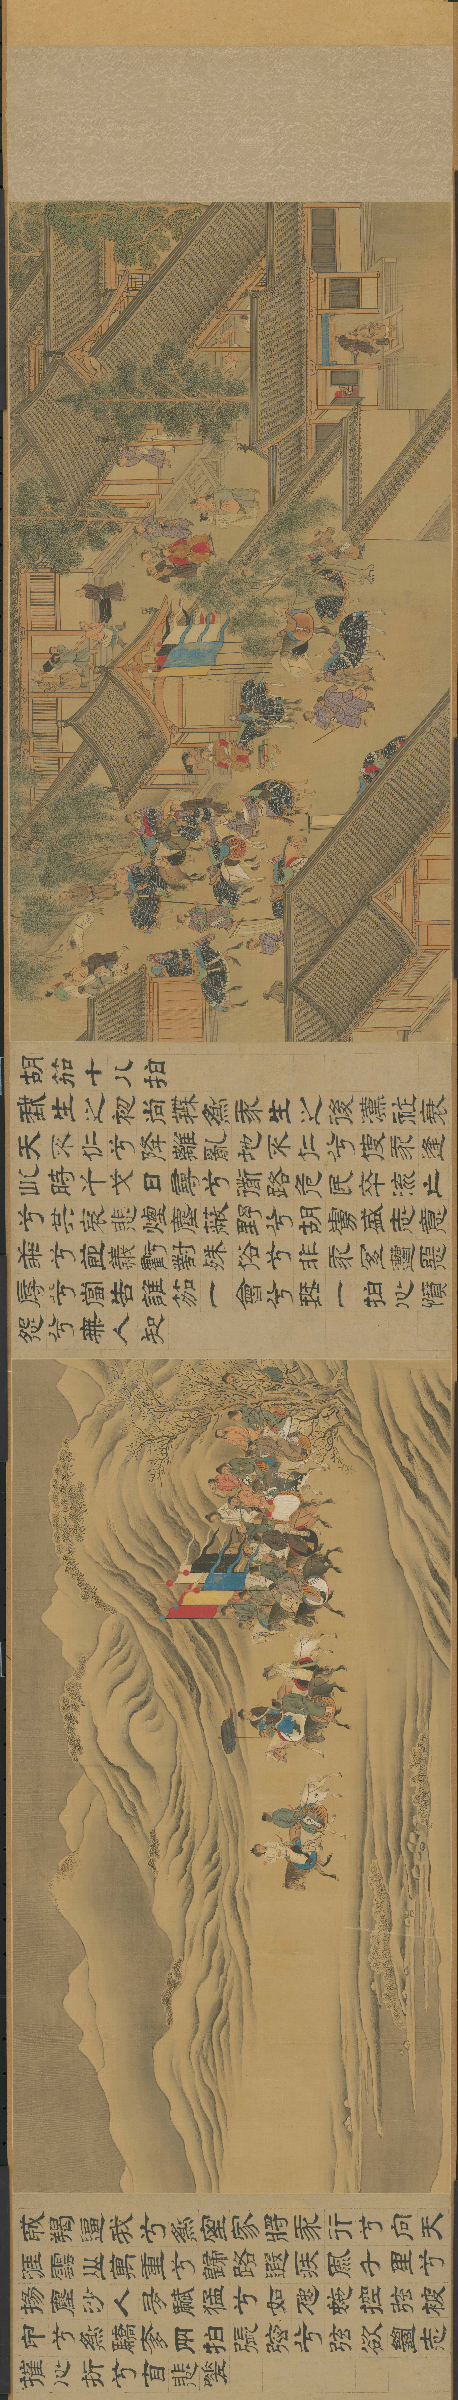 胡笳十八拍
我生之初尚無為我生之後漢祚衰
天不仁兮降離亂地不仁兮使我逢
此時干戈日尋兮道路危民卒流亡
兮共哀悲煙塵蔽野兮胡虜盛志意
乖兮節義虧對殊俗兮非我宜遭惡
辱兮當告誰笳一會兮琴一拍心憤
怨兮無人知
戎羯逼我兮為室家將我行兮向天
涯雲山萬重兮歸路遐疾風千里兮
揚塵沙人多猛兮如虺蛇控弦被
甲兮為驕奢兩拍張弦兮弦欲絕志
摧心折兮自悲嗟